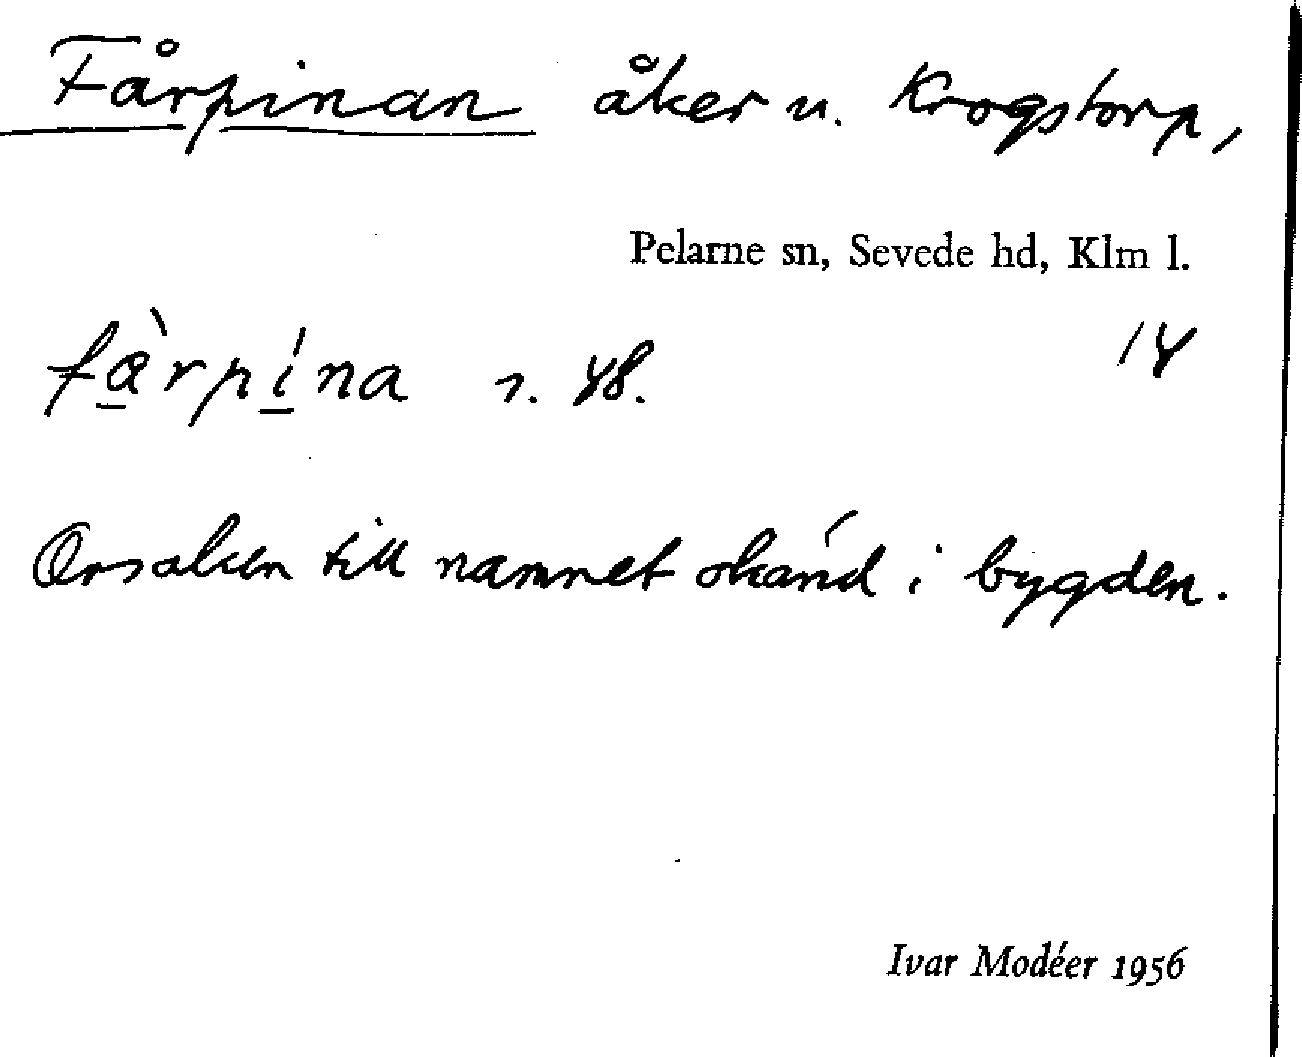 Fårpinan åker u. Krogstorp,
Pelarne sn, Sevede hd, Klm l.
fæ̀rpína s. 48.
14
Orsaken till namnet okänd i bygden.
Ivar Modéer 1956